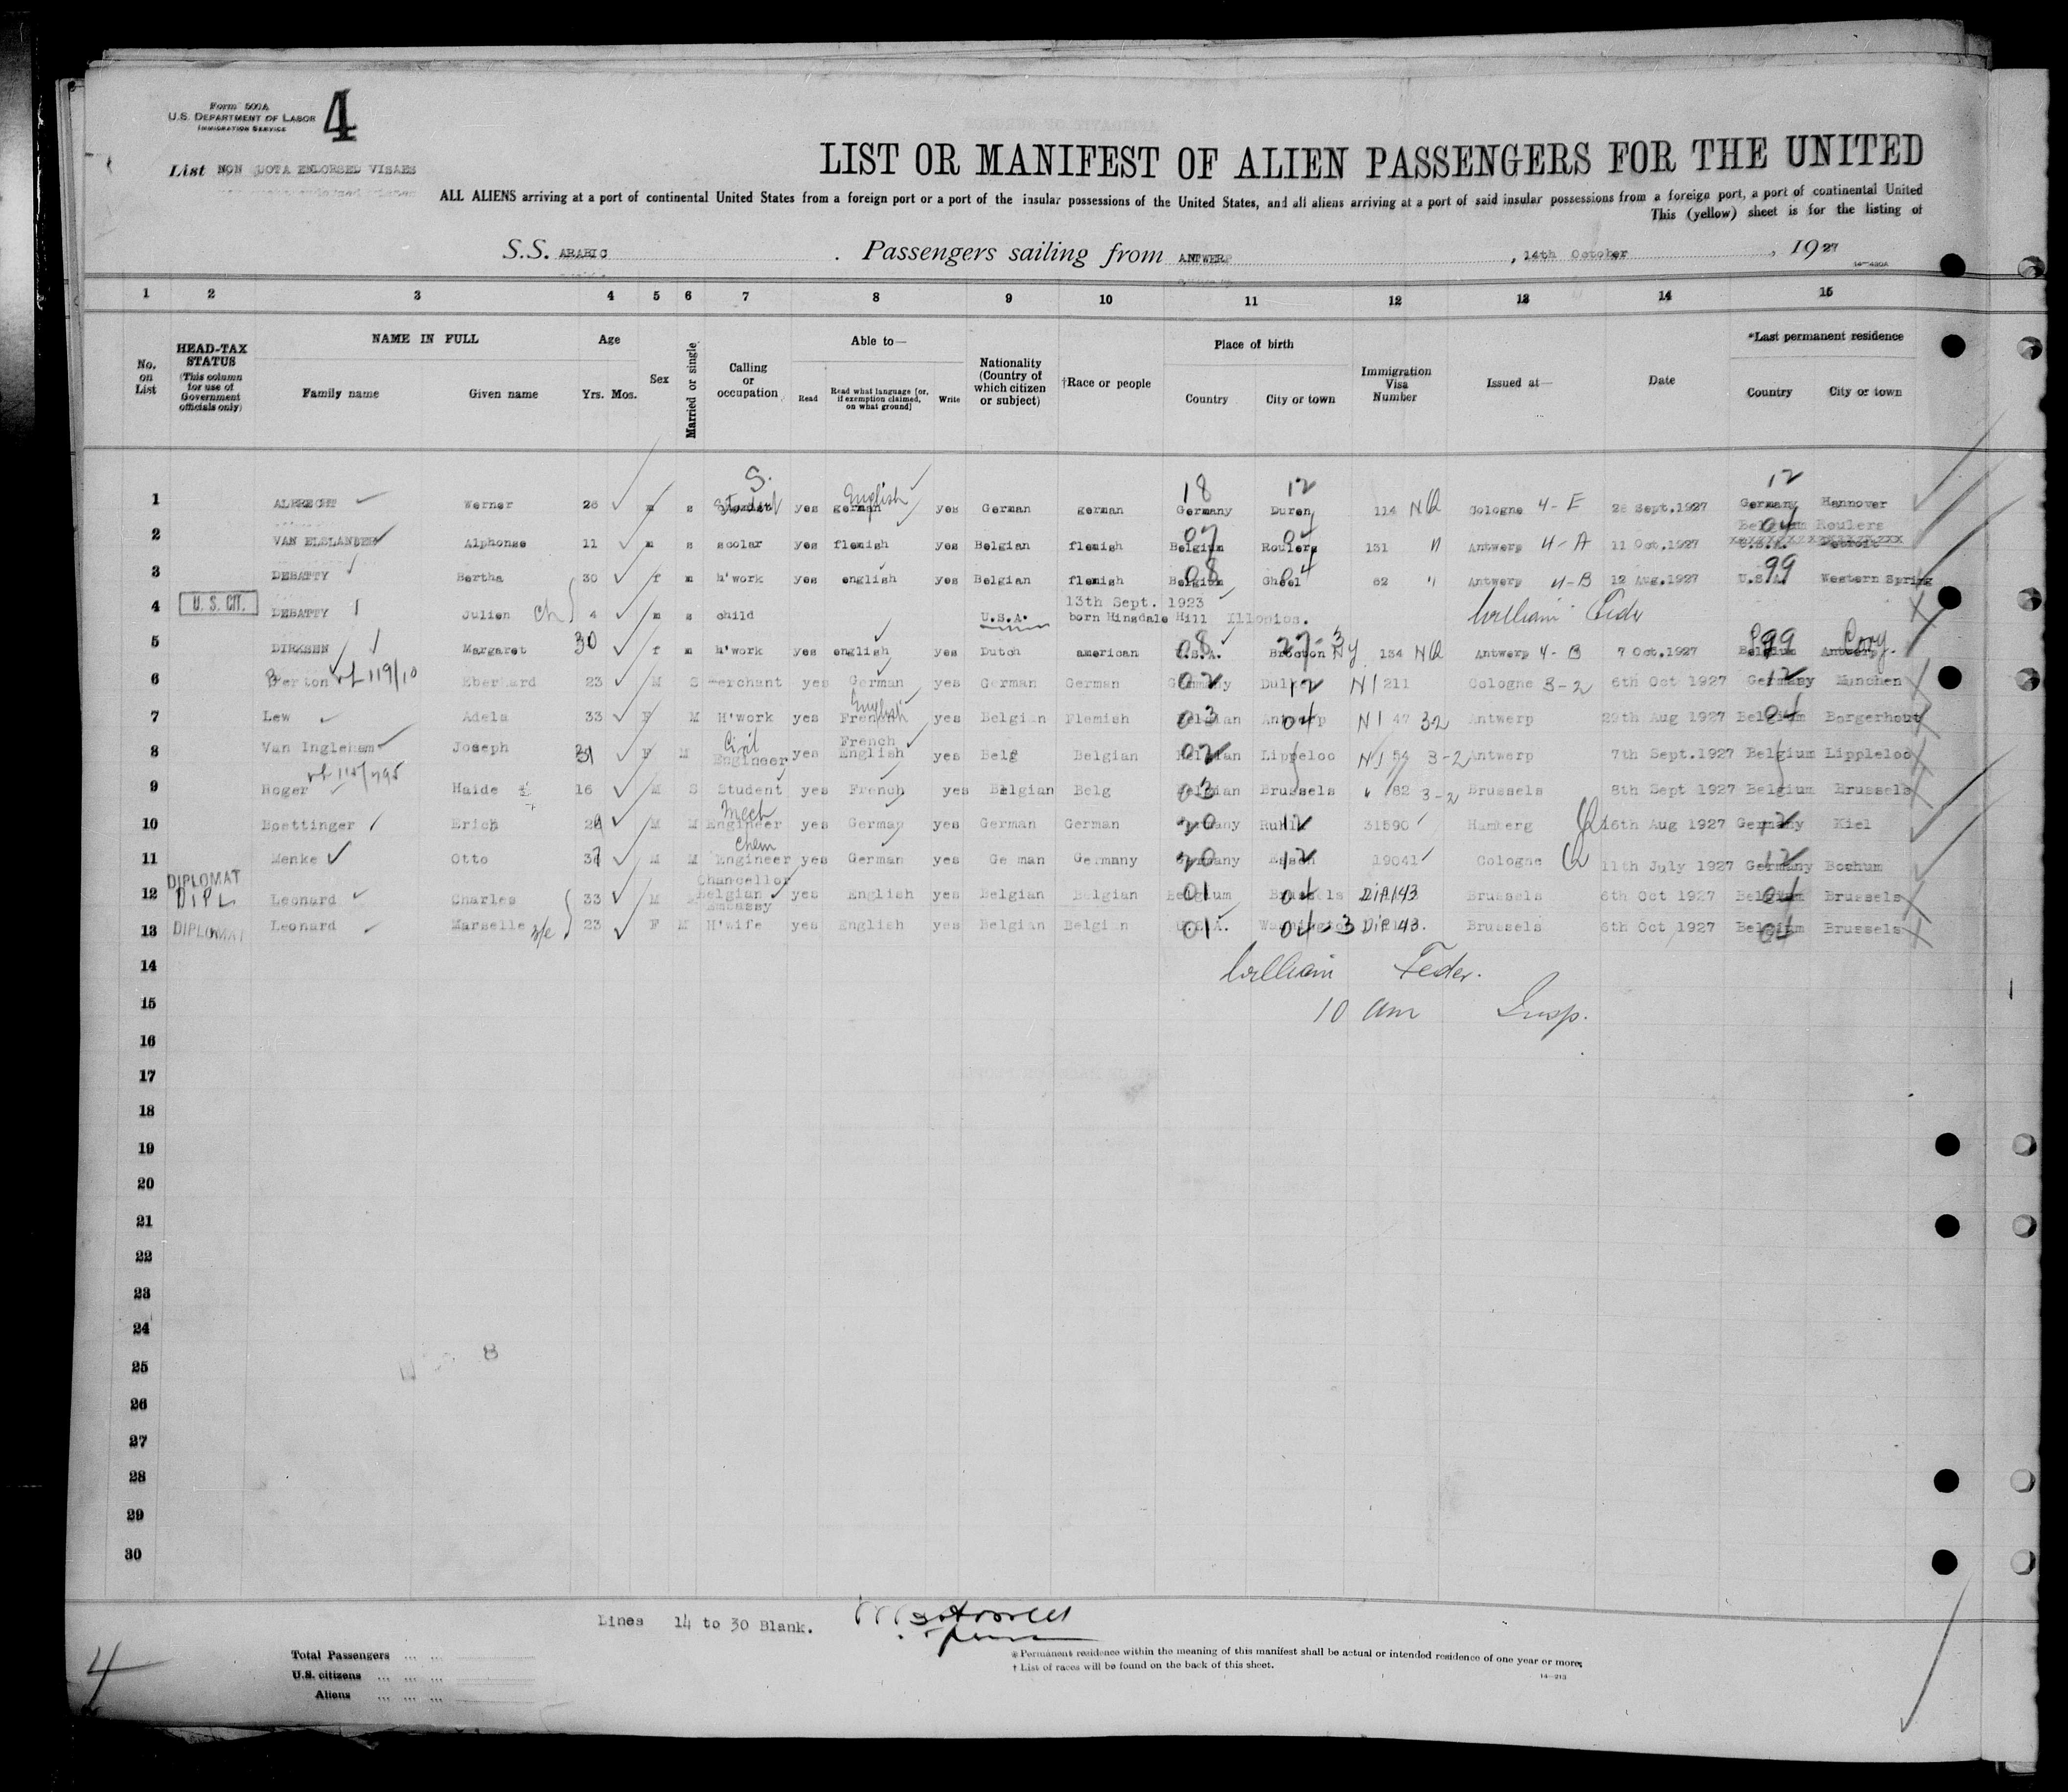 Form 500A
U.S. DEPARTMENT OF LABOR
IMMIGRATION SERVICE
4
List NON QUOTA ENDORSED VISAES
LIST OR MANIFEST OF ALIEN PASSENGERS FOR THE UNITED
ALL ALIENS arriving at a port of continental United States from a foreign port or a port of the insular possessions of the United States, and all aliens arriving at a port of said insular possessions from a foreign port, a port of continental United
This (yellow) sheet is for the listing of
S.S. ARABIC . Passengers sailing from ANTWERP , 14th October , 1927
1 2 3 4 5 6 7 8 9 10 11 12 13 14 15
No. on List
HEAD-TAX STATUS (This column for use of Government officials only)
NAME IN FULL
Family name Given name
Age
Yrs. Mos.
Sex
Married or single
Calling or occupation
Able to—
Read Read what language [or, if exemption claimed, on what ground] Write
Nationality (Country of which citizen or subject)
†Race or people
Place of birth
Country City or town
Immigration Visa Number
Issued at—
Date
*Last permanent residence
Country City or town
S. English 18 12 12
1 ALBRECHT Werner 26 m s Student yes german yes German german Germany Duren 114 NQ Cologne 4-E 28 Sept.1927 Germany Hannover
07 04 04 Belgium Roulers
2 VAN ELSLANDER Alphonse 11 m s scolar yes flemish yes Belgian flemish Belgium Roulers 131 " Antwerp 4-A 11 Oct.1927 U.S.A. Detroit
08 04 99
3 DEBATTY Bertha 30 f m h'work yes english yes Belgian flemish Belgium Gheel 62 " Antwerp 4-B 12 Aug.1927 U.S.A. Western Spring
13th Sept. 1923
4 U. S. CIT. DEBATTY Julien ch 4 m s child U.S.A. born Hinsdale Hill Illonios. William Feder
5 DIRKSEN Margaret 30 f m h'work yes english yes Dutch american 08 U.S.A. 27-3 Brocton NY 134 NQ Antwerp 4-B 7 Oct.1927 99 Belgium Antwerp Cory.
6 Berton 119/10 Eberhard 23 M S merchant yes German yes German German 02 Germany 12 N1 211 Cologne 3-2 6th Oct 1927 12 Germany Munchen
English
7 Lew Adela 33 F M H'work yes French yes Belgian Flemish 03 Belgian 04 Antwerp N1 47 32 Antwerp 29th Aug 1927 04 Belgium Borgerhout
Civil French
8 Van Ingleham Joseph 31 F M Engineer yes English yes Belg Belgian 02 Belgian Lippeloo N1 54 3-2 Antwerp 7th Sept.1927 Belgium Lippleloo
9 Roger Haide 16 M S Student yes French yes Belgian Belg 03 Belgian Brussels " 82 3-2 Brussels 8th Sept 1927 Belgium Brussels
Mech
10 Boettinger Erich M M Engineer yes German yes German German 20 Germany 12 31590 Hamberg Q 16th Aug 1927 12 Germany Kiel
Chem
11 Menke Otto 37 M M Engineer yes German yes Ge man Germany 20 Germany 12 Essen 19041 Cologne Q 11th July 1927 12 Germany Bochum
DIPLOMAT Chancellor
12 DIPL Leonard Charles 33 M Belgian Embassy yes English yes Belgian Belgian 01 Belgium 04 Brussels Dip 143 Brussels 6th Oct 1927 04 Belgium Brussels
13 DIPLOMAT Leonard Marselle 23 F M H'wife yes English yes Belgian Belgian 01 U.S.A. 04-3 Washington Dip 43. Brussels 6th Oct 1927 04 Belgium Brussels
14 William Feder.
15 10 am Insp.
16
17
18
19
20
21
22
23
24
25 8
26
27
28
29
30
Lines 14 to 30 Blank.
Total Passengers
U.S. citizens
Aliens
* Permanent residence within the meaning of this manifest shall be actual or intended residence of one year or more.
† List of races will be found on the back of this sheet.
14—213
4